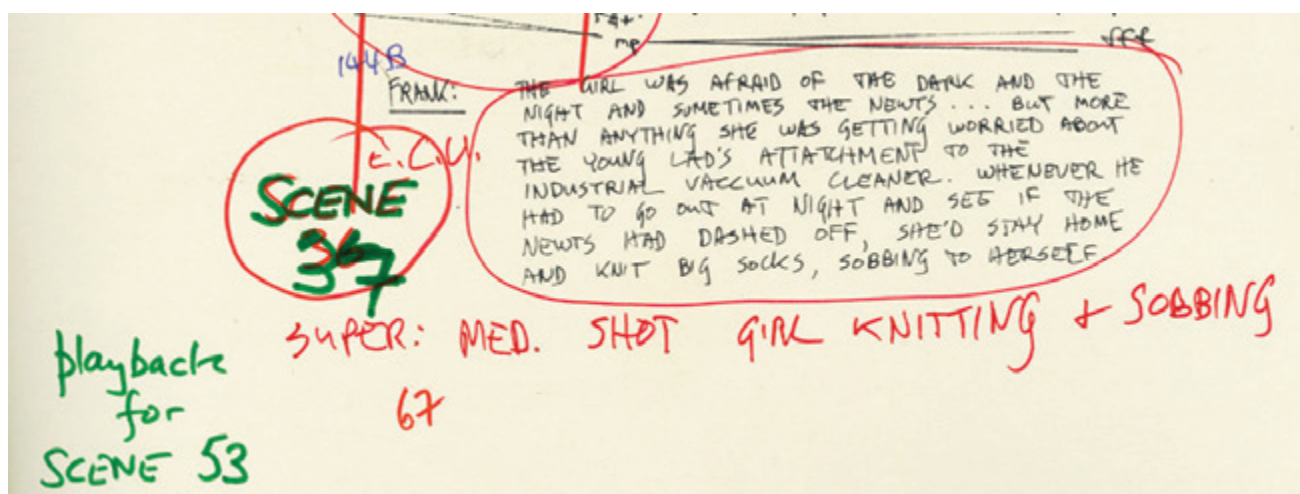 mp
144B
FRANK:
THE GIRL WAS AFRAID OF THE DARK AND THE
NIGHT AND SUMETIMES THE NEWTS... BUT MORE
THAN ANYTHING SHE WAS GETTING WORRIED ABOUT
THE YOUNG LAD'S ATTATCHMENT TO THE
INDUSTRIAL VACCUUM CLEANER. WHENEVER HE
HAD TO GO OUT AT NIGHT AND SEE IF THE
NEWTS HAD DASHED OFF, SHE'D STAY HOME
AND KNIT BIG SOCKS, SOBBING TO HERSELF
E.C.U.
SCENE
37
SUPER: MED. SHOT GIRL KNITTING + SOBBING
67
playback
for
SCENE 53